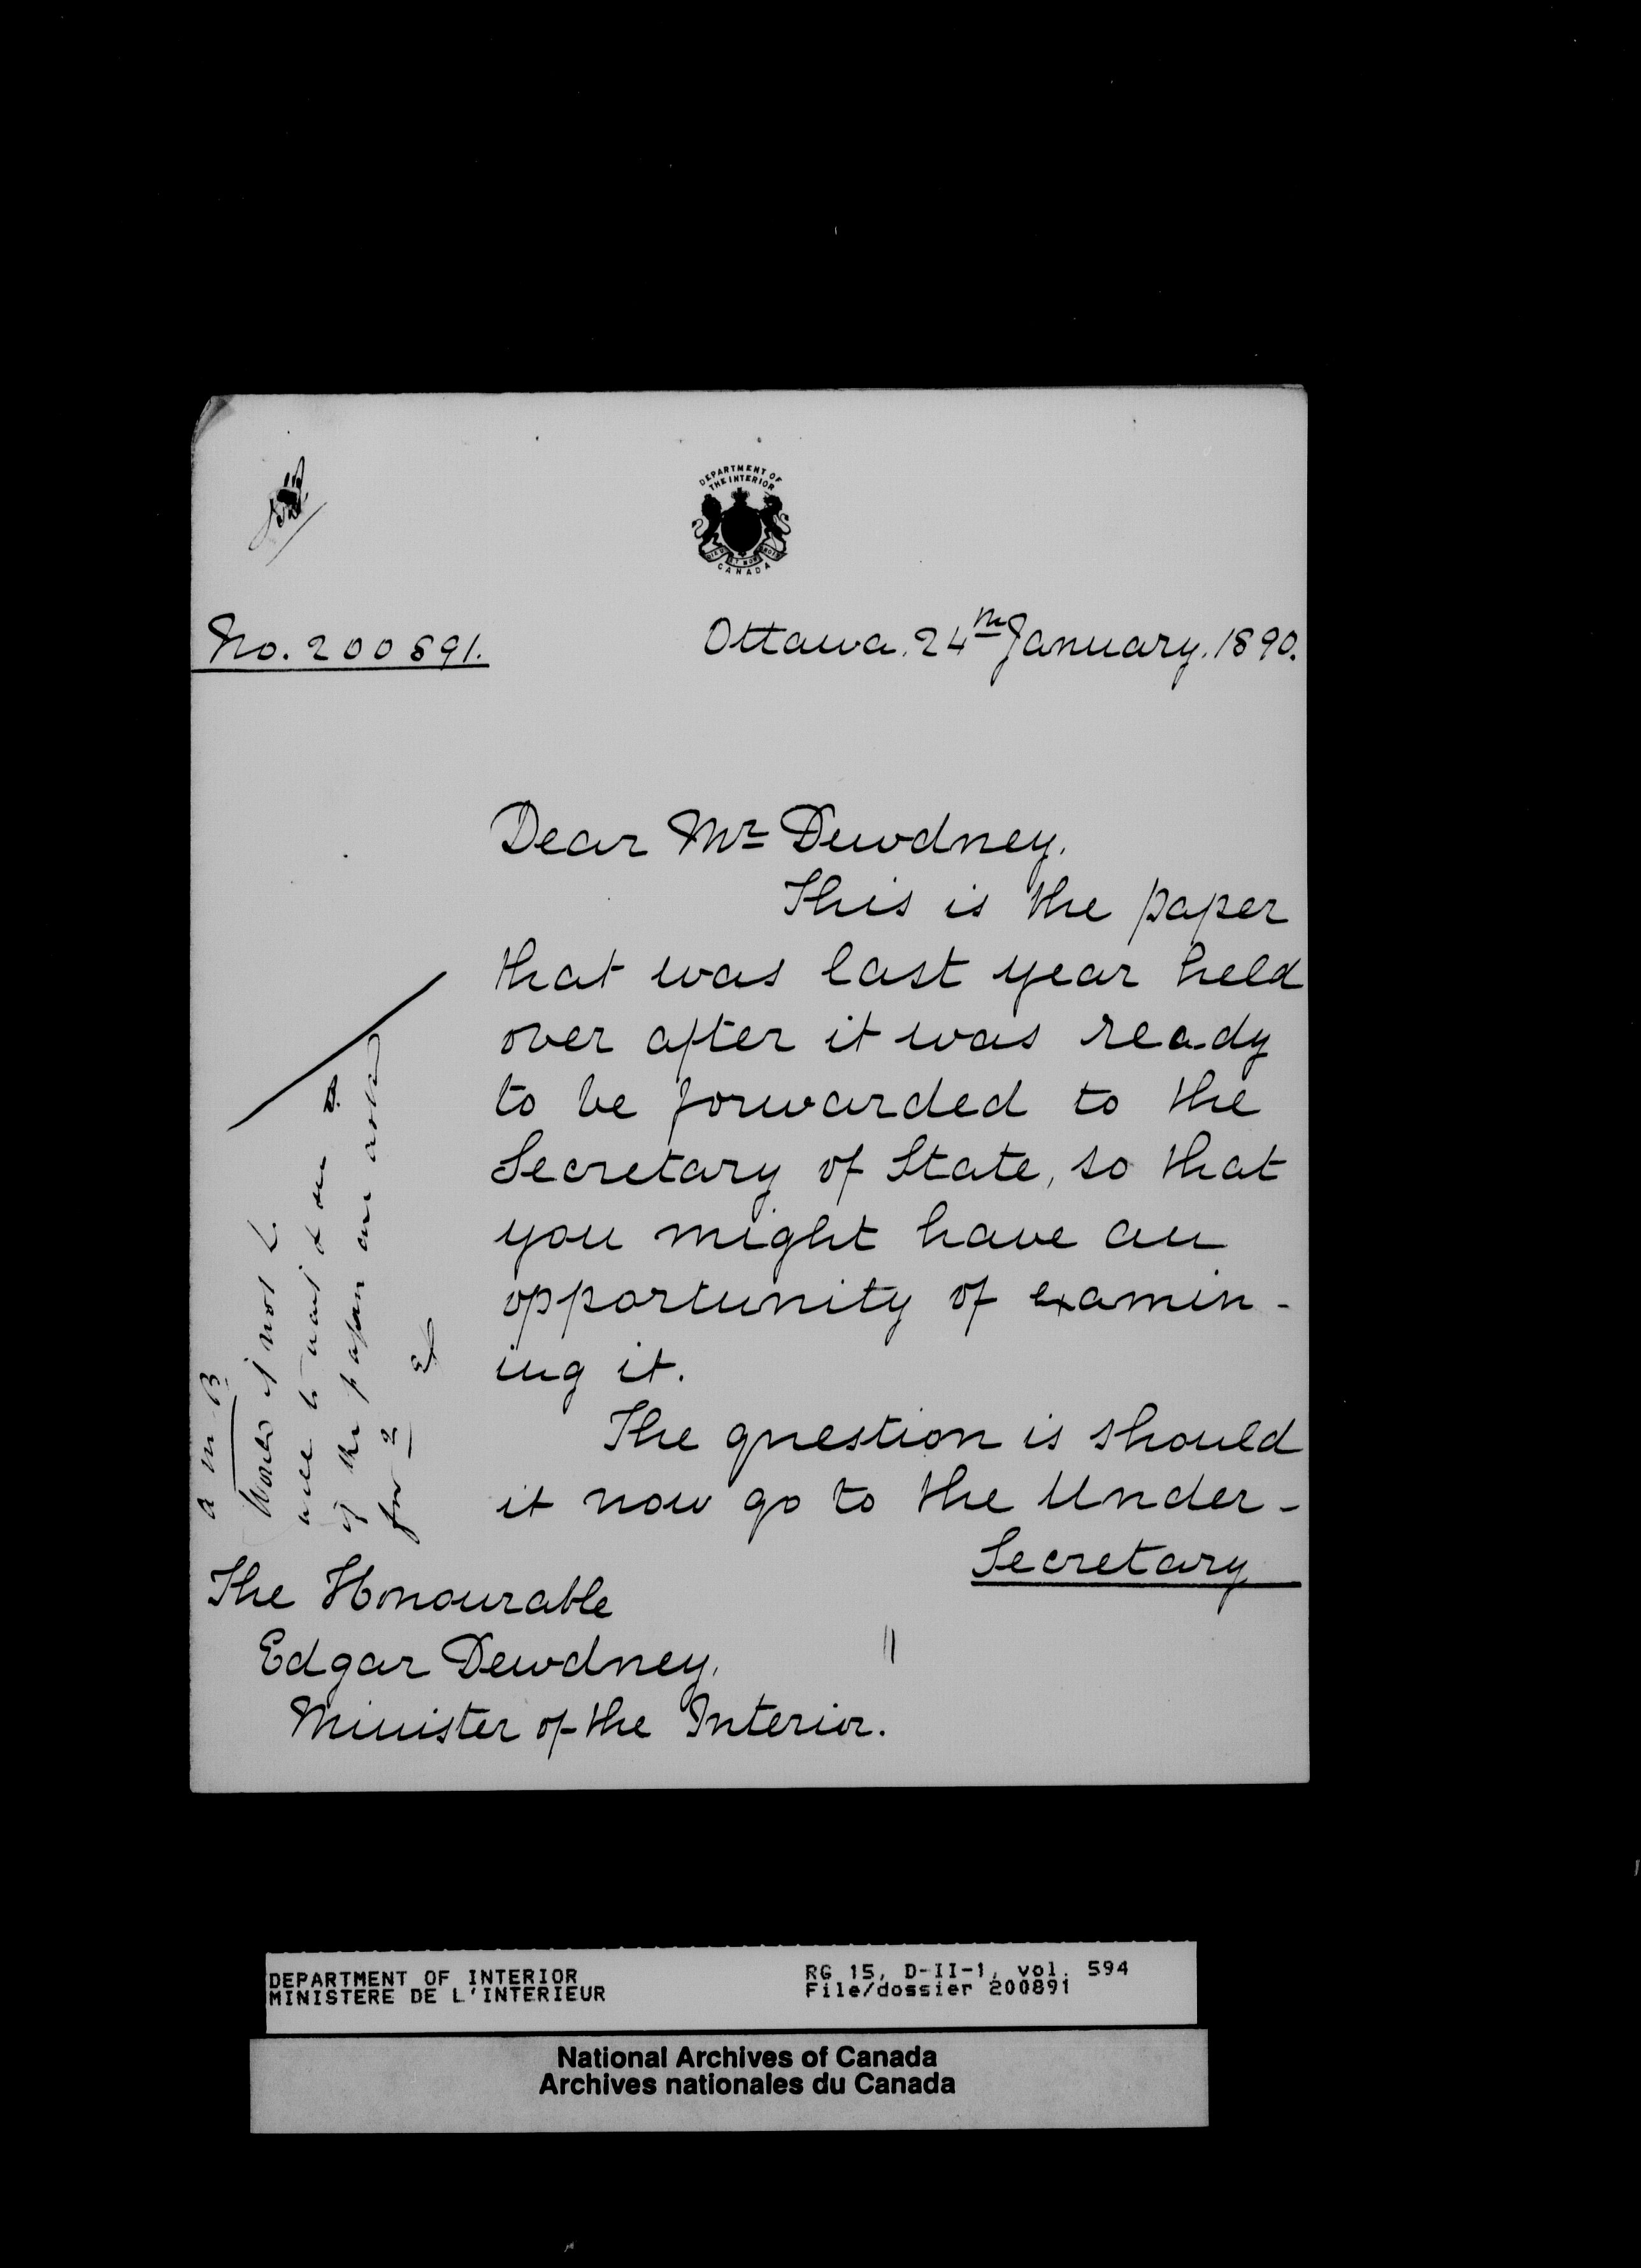 DEPARTMENT OF
THE INTERIOR
CANADA
No. 200891.
Ottawa. 24th January. 1890.
Dear Mr Dewdney.
This is the paper
that was last year held
over after it was ready
to be forwarded to the
Secretary of State, so that
you might have an
opportunity of examin-
ing it.
The question is should
it now go to the Under-
Secretary
A M B
Would it not be
well to wait & see
if the papers are asked
for?
The Honourable
Edgar Dewdney.
Minister of the Interior.
DEPARTMENT OF INTERIOR
MINISTERE DE L'INTERIEUR
RG 15, D-II-1, vol. 594
File/dossier 200891
National Archives of Canada
Archives nationales du Canada